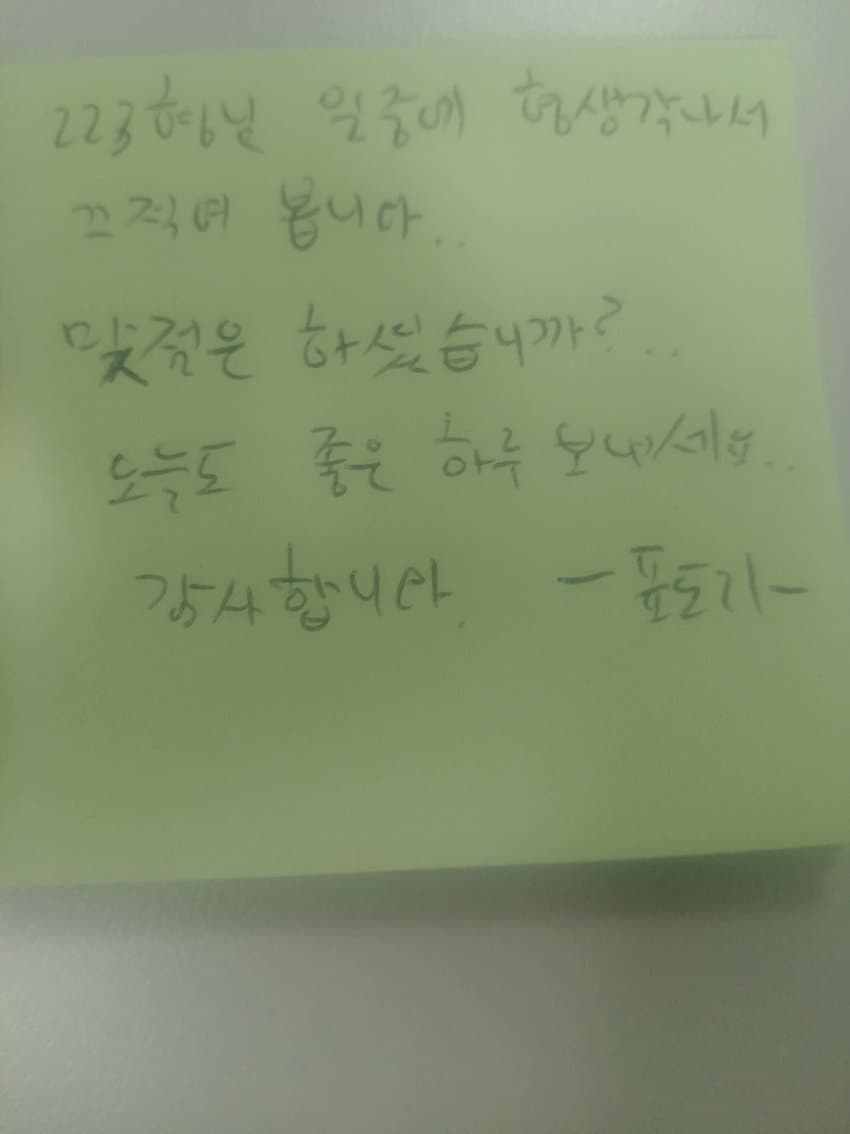 223형님 일중에 형생각나서
끄적여 봅니다..
맞점은 하셨습니까?..
오늘도 좋은 하루 보내세요..
감사합니다. -푶도기-